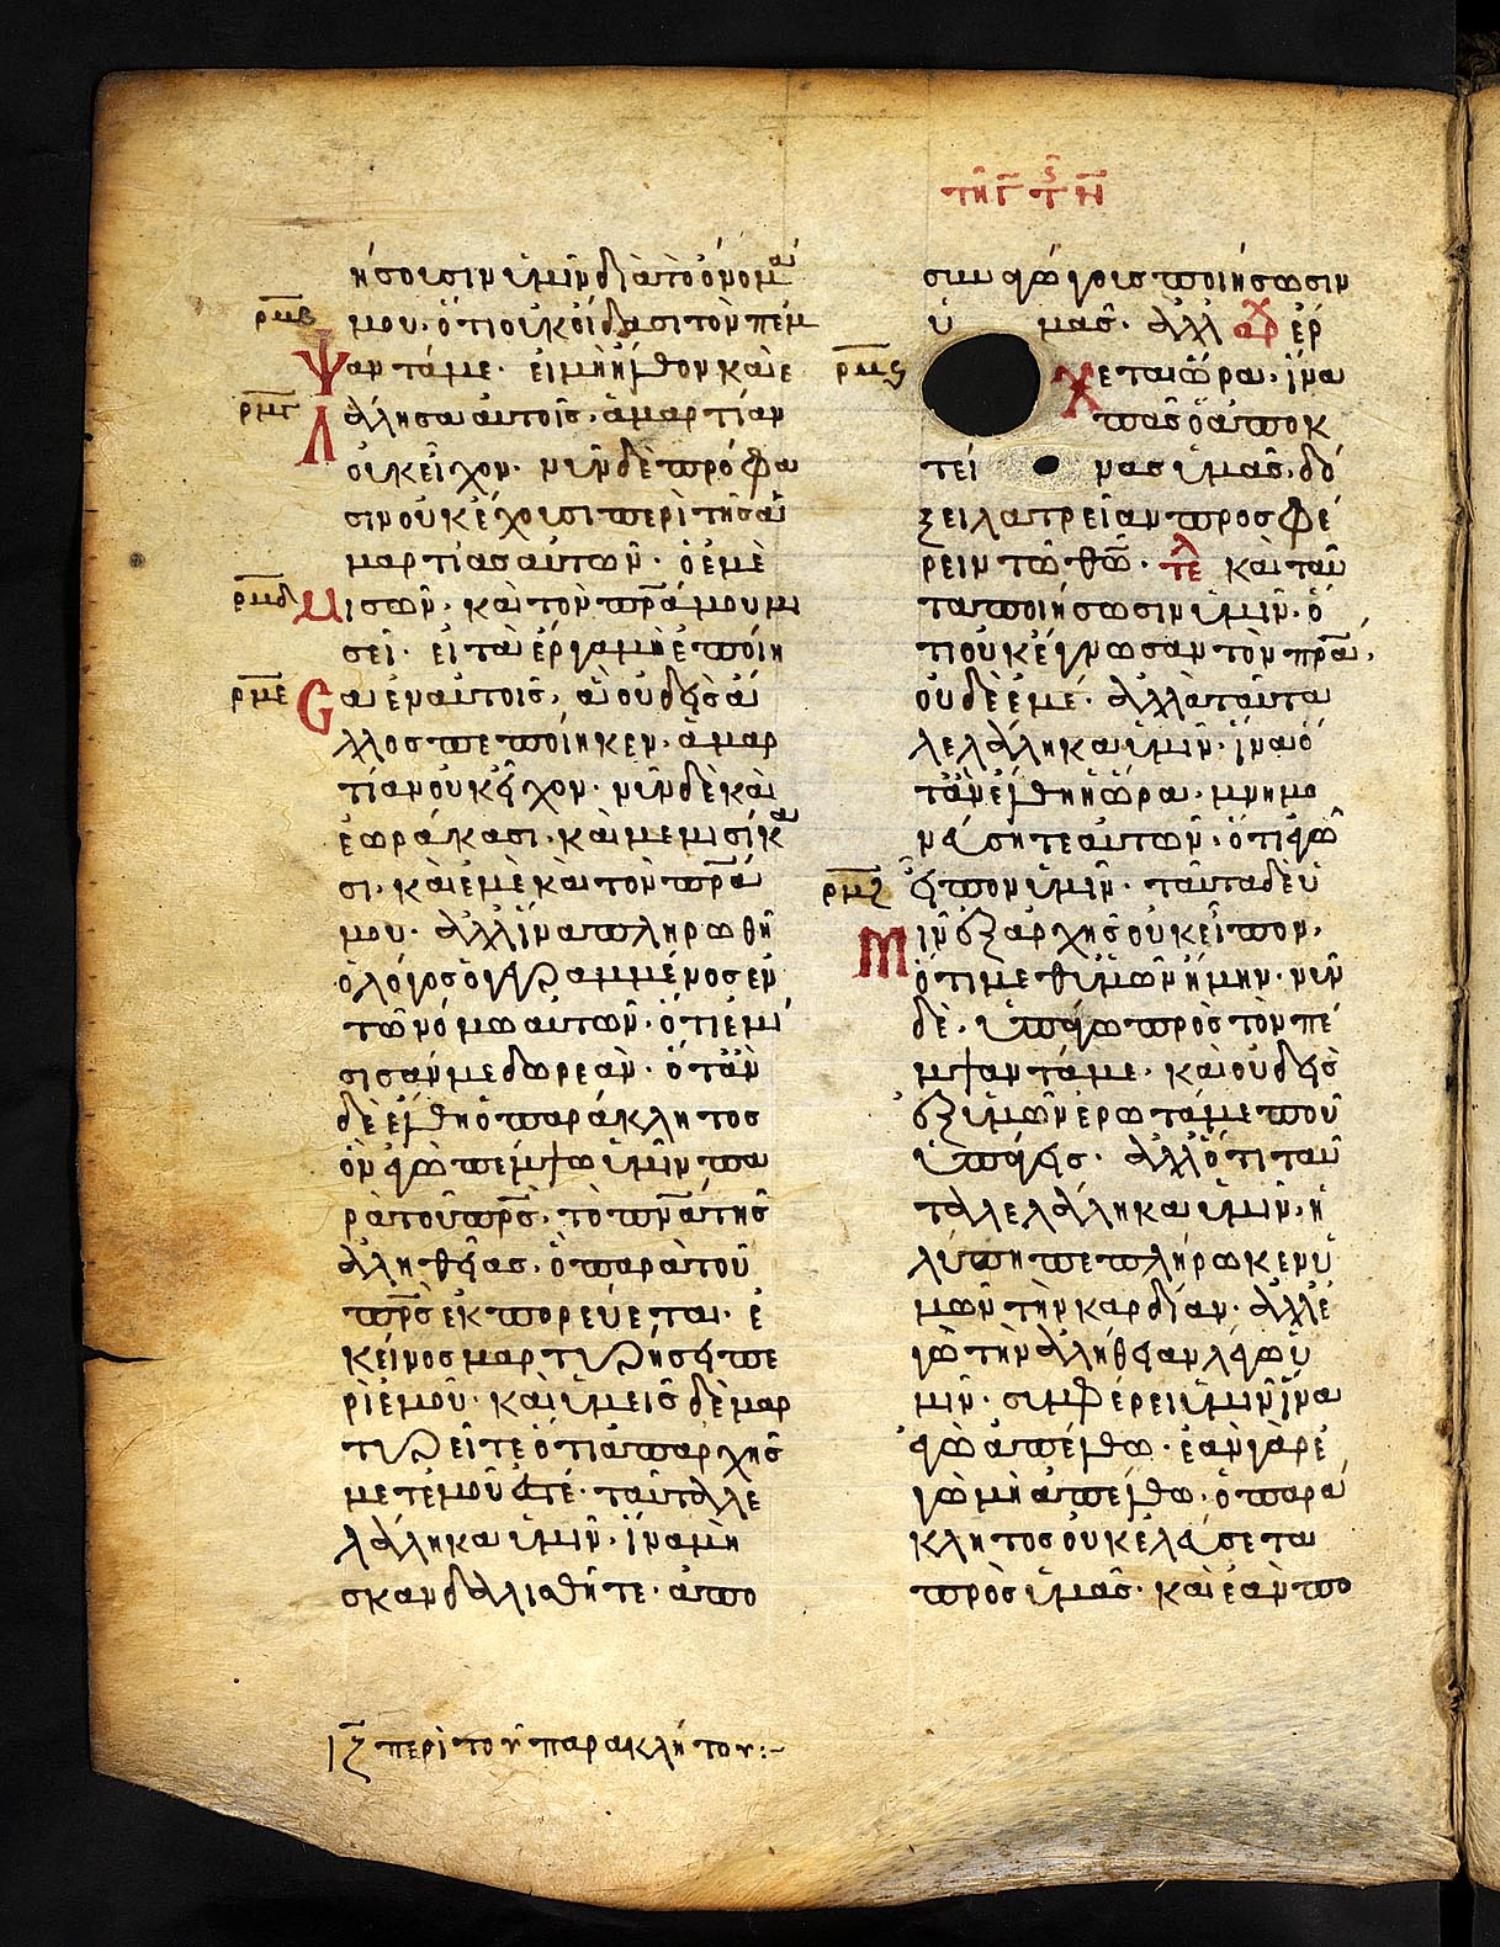 τῆ γ̅ τ ϛ̅ η̅
ήσουσιν ὑμῖν διὰ τὸ ὄνομά
ρμβ μου· ὅτι οὐκ οἴδασι τὸν πέμ
Ψαντά με· εἰ μὴ ἦλθον καὶ ἐ
ρμγ Λάλησα αὐτοῖς, ἁμαρτίαν
οὐκ εἶχον· νῦν δὲ πρόφα
σιν οὐκ ἔχουσι περὶ τῆς ἁ
μαρτίας αὐτῶν· ὁ ἐμὲ
ρμδ Μισῶν, καὶ τὸν π̅ρ̅α̅ μου μι
σεῖ· εἰ τὰ ἔργα μὴ ἐποίη
ρμε Cα ἐν αὐτοῖς, ἃ οὐδεὶς ἄ
λλος πεποίηκεν, ἁμαρ
τίαν οὐκ εἶχον· νῦν δὲ καὶ
ἑωράκασι, καὶ μεμισήκα
σι, καὶ ἐμὲ καὶ τὸν π̅ρ̅α̅
μου· ἀλλ ἵνα πληρωθῆ
ὁ λόγος ὁ γεγραμμένος ἐν
τῶ νόμω αὐτῶν· ὅτι ἐμί
σισάν με δωρεὰν· ὅταν
δὲ ἔλθη ὁ παράκλητος
ὃν ἐγὼ πέμψω ὑμῖν πα
ρὰ τοῦ π̅ρ̅ς̅, τὸ π̅ν̅α̅ τῆς
ἀληθείας, ὃ παρὰ τοῦ
π̅ρ̅ς̅ ἐκπορεύεται· ἐ
κεῖνος μαρτυρήσει πε
ρὶ ἐμοῦ· καὶ ὑμεῖς δὲ μαρ
τυρεῖτε ὅτι ἀπαρχῆς
μετ ἐμοῦ ἐστέ· ταῦτα λε
λάληκα ὑμῖν, ἵνα μὴ
σκανδαλισθῆτε· ἀπο
συναγώγους ποιήσωσιν
ὑμᾶς· ἀλλ αρχ ἔρ
ρμϛ Χεται ὥρα, ἵνα
πᾶς ὁ ἀποκ
τείνας ὑμᾶς, δό
ξει λατρείαν προσφέ
ρειν τῶ θ̅ω̅· τελ καὶ ταῦ
τα ποιήσωσιν ὑμῖν· ὅ
τι οὐκ ἔγνωσαν τὸν π̅ρ̅α̅,
οὐδὲ ἐμέ· ἀλλὰ ταῦτα
λελάληκα ὑμῖν· ἵνα ὅ
ταν ἔλθη ἡ ὥρα, μνημο
νεύσητε αὐτῶν, ὅτι ἐγὼ
ρμζ εἶπον ὑμῖν· ταῦτα δὲ ὑ
Μῖν ἐξ ἀρχῆς οὐκ εἶπον,
ὅτι μεθ ὑμῶν ἤμην· νῦν
δὲ, ὑπάγω πρὸς τὸν πέ
μψαντά με· καὶ οὐδεὶς
ἐξ ὑμῶν ἐρωτᾶ με ποῦ
ὑπάγεις· ἀλλ ὅτι ταῦ
τα λελάληκα ὑμῖν, ἡ
λύπη πεπλήρωκεν ὑ
μῶν τὴν καρδίαν· ἀλλ ἐ
γὼ τὴν ἀλήθειαν λέγω ὑ
μῖν· συμφέρει ὑμῖν ἵνα
ἐγὼ ἀπέλθω· ἐὰν γὰρ ἐ
γὼ μὴ ἀπέλθω, ὁ παρά
κλητος οὐκ ἐλεύσεται
πρὸς ὑμᾶς· καὶ ἐὰν πο
ιζ περὶ τοῦ παρακλήτου:~